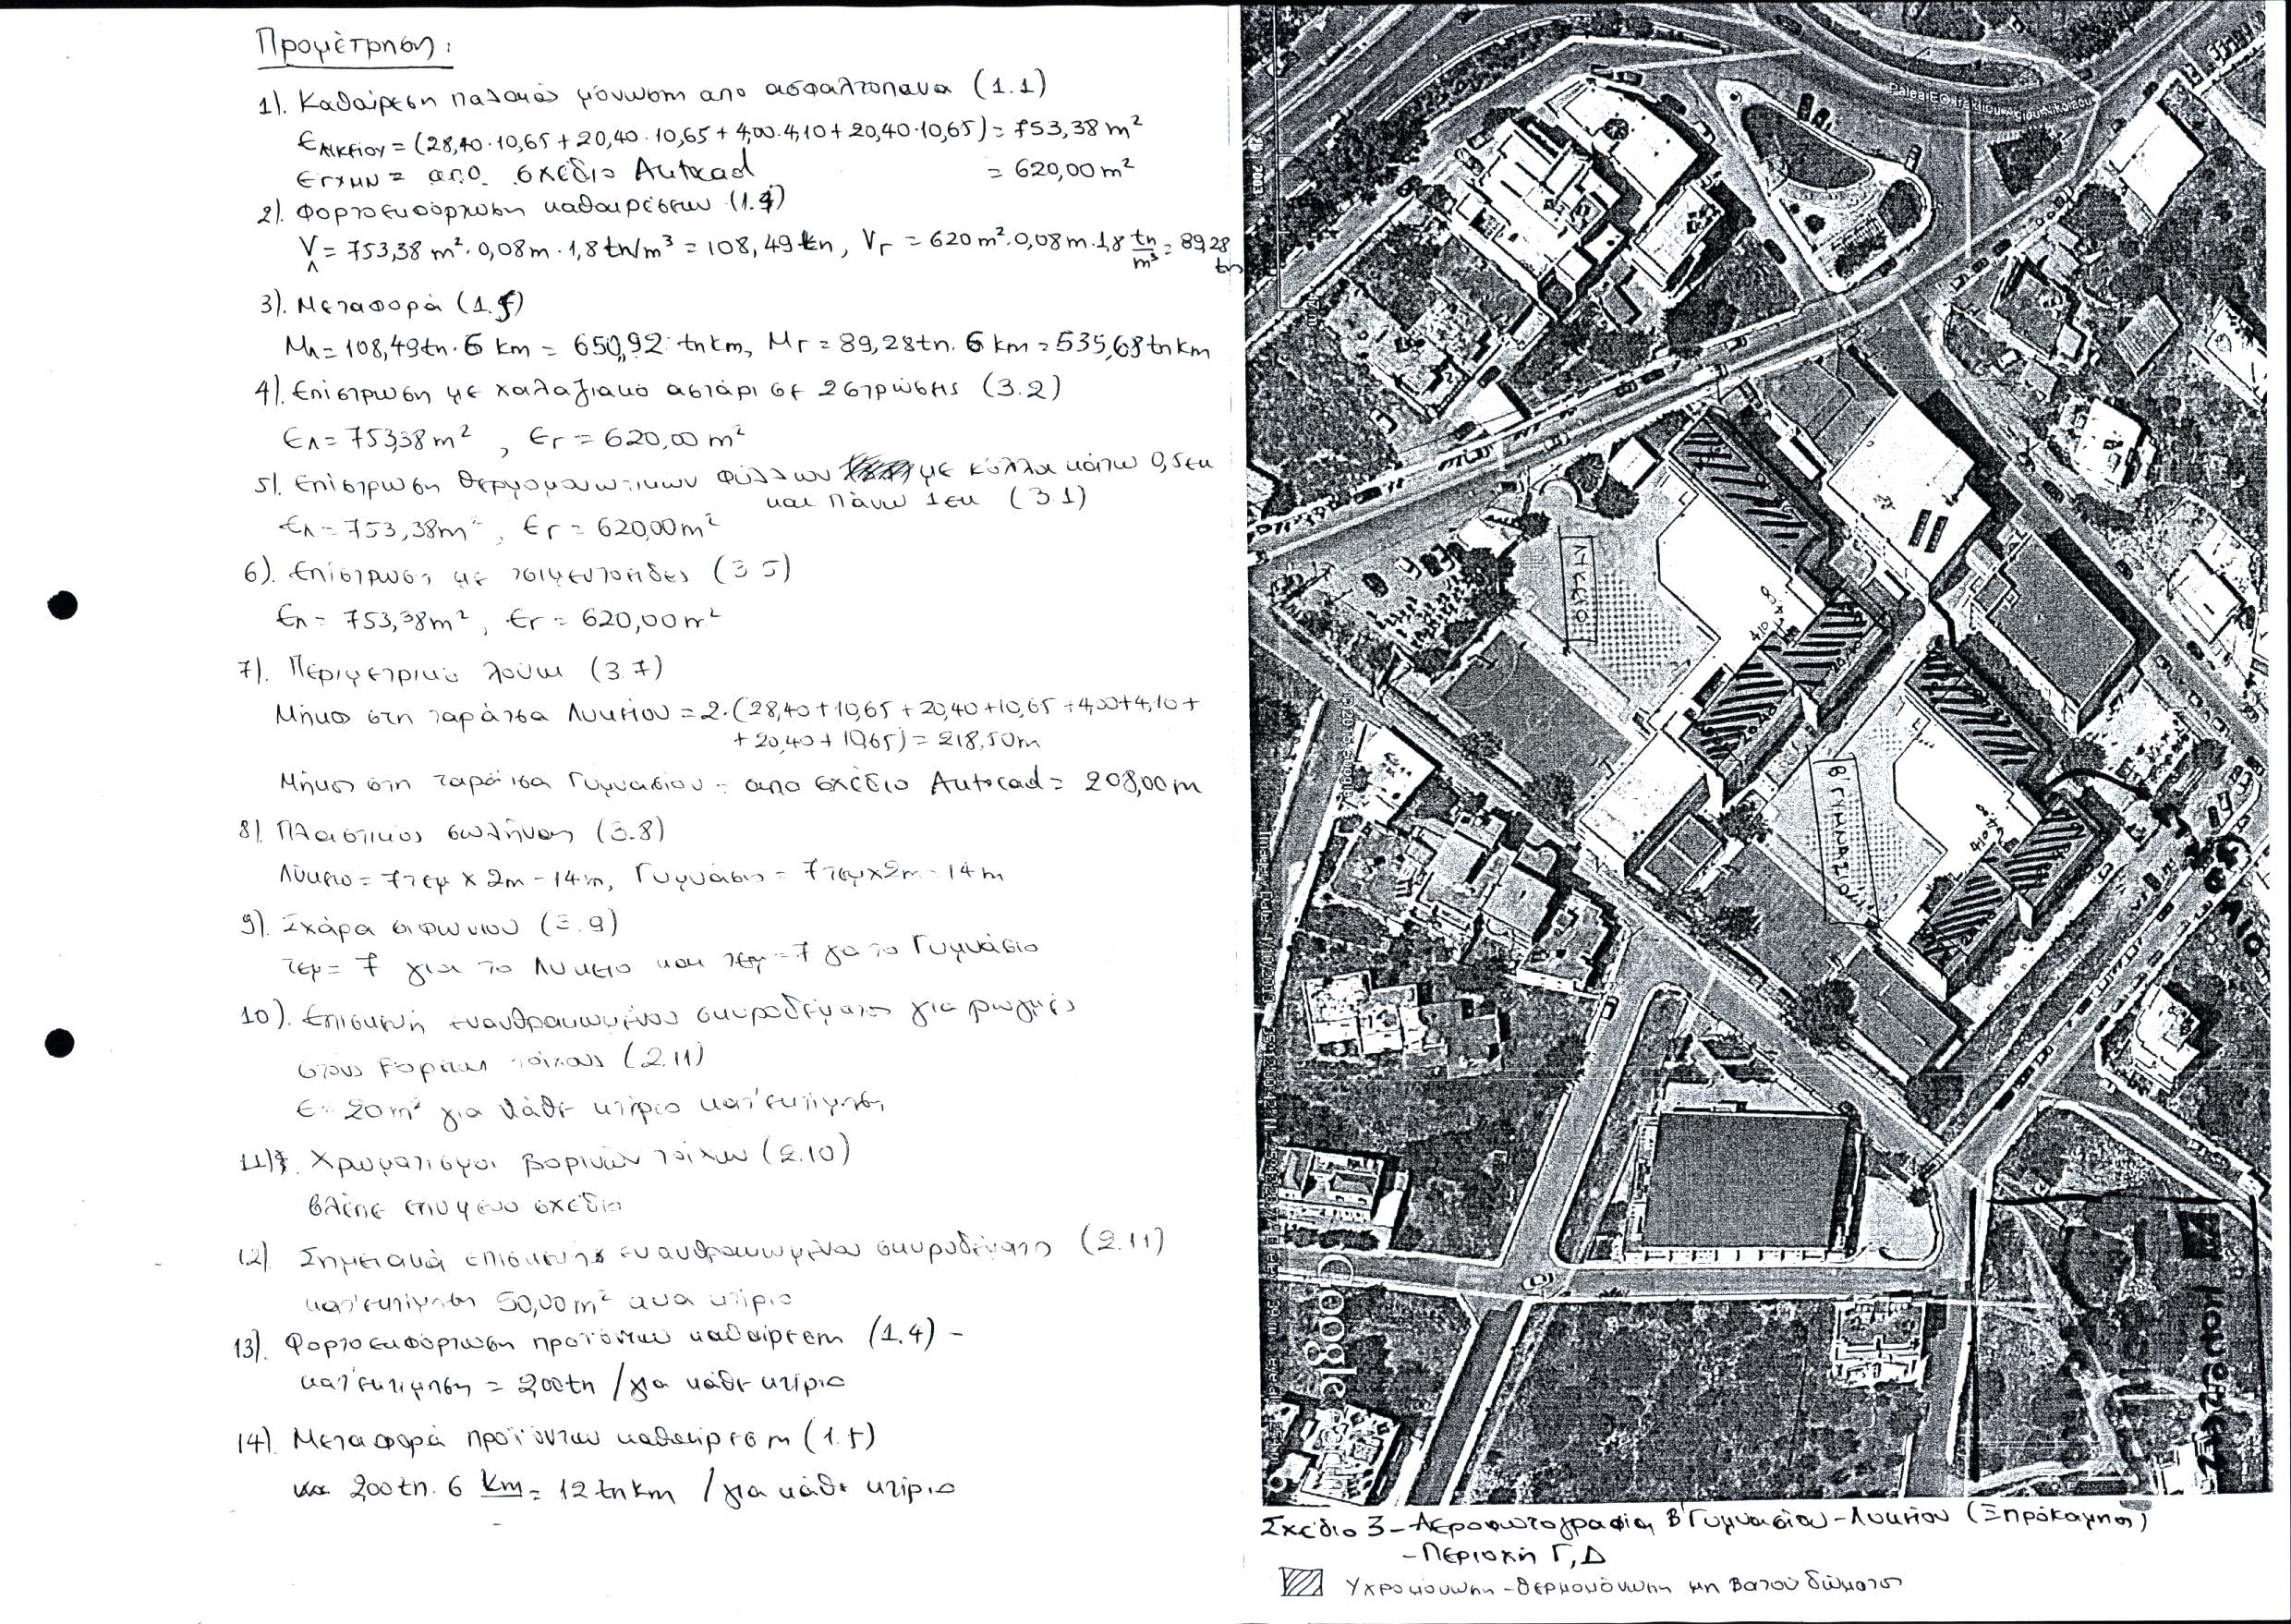 Προμέτρηση:
1). Καθαίρεση παλαιάς μόνωση απο ασφαλτοπανα (1.1)
Ελυκείου = (28,40·10,65 + 20,40·10,65 + 4,00·4,10 + 20,40·10,65) = 753,38 m²
Εγυμν = απο σχέδιο Autocad = 620,00 m²
2). Φορτοεκφόρτωση καθαιρέσεων (1.4)
VΛ = 753,38 m²·0,08m·1,8 tn/m³ = 108,49 tn, VΓ = 620 m²·0,08m·1,8 tn/m³ = 89,28 tn
3). Μεταφορά (1.5)
ΜΛ = 108,49 tn·6 km = 650,92 tnkm, ΜΓ = 89,28 tn. 6 km = 535,68 tnkm
4). Επίστρωση με χαλαζιακό αστάρι σε 2 στρώσεις (3.2)
ΕΛ = 753,38 m², ΕΓ = 620,00 m²
5). Επίστρωση θερμομονωτικών φύλλων με κόλλα κάτω 0,5εκ
και πάνω 1εκ (3.1)
ΕΛ = 753,38 m², ΕΓ = 620,00 m²
6). Επίστρωση με τσιμεντοειδες (3.5)
ΕΛ = 753,38 m², ΕΓ = 620,00 m²
7). Περιμετρικό λούκι (3.7)
Μήκος στη ταράτσα Λυκείου = 2·(28,40 + 10,65 + 20,40 + 10,65 + 4,00 + 4,10 +
+ 20,40 + 10,65) = 218,50 m
Μήκος στη ταράτσα Γυμνασίου = απο σχέδιο Autocad = 208,00 m
8). Πλαστικός σωλήνας (3.8)
Λύκειο = 7τεμ x 2m = 14m, Γυμνάσιο = 7τεμ x 2m = 14m
9). Σχάρα σιφωνιου (3.9)
τεμ = 7 για το Λυκειο και τεμ = 7 για το Γυμνάσιο
10). Επισκευή ενανθρακωμένου σκυροδέματος για ρωγμές
στους τοίχους (2.11)
Ε = 20 m² για κάθε κτίριο κατ' εκτίμηση
11). Χρωματισμοι βορινών τοίχων (2.10)
βλέπε επομενο σχέδιο
12). Σημειακή επισκευή ενανθρακωμένου σκυροδέματος (2.11)
κατ' εκτίμηση 50,00 m² ανα κτίριο
13). Φορτοεκφόρτωση προϊόντων καθαίρεση (1.4) -
κατ' εκτίμηση = 200 tn / για κάθε κτίριο
14). Μεταφορά προϊόντων καθαίρεση (1.5)
200 tn. 6 km = 12 tnkm / για κάθε κτίριο
Palea EO Irakliou - Agiou Nikolaou
ΛΥΚΕΙΟ
4,00
4.10
Β' ΓΥΜΝΑΣΙΟ
4,00
4,10
Google
Σχέδιο 3 - Αεροφωτογραφία Β' Γυμνασίου - Λυκείου (Ξηρόκαμπος)
- Περιοχή Γ, Δ
Υγρομόνωση - θερμομόνωση μη βατού δώματος